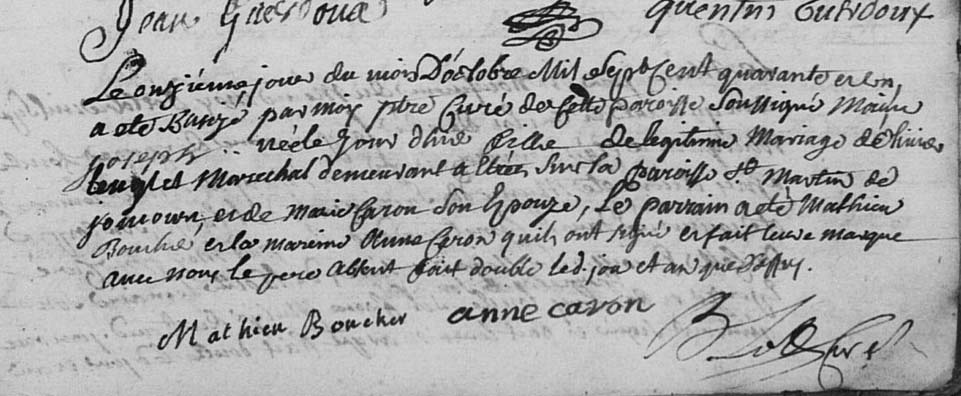 Jean Guesdoux quentin Guesdoux
Le onziéme jour du mois D'octobre Mil Sept Cent quarante et un
a eté Batizé par moy ptre Curé de Cette paroisse Soussigné Marie
joseph .. née le jour d'hier fille de legitime Mariage de
Marechal demeurant a Sur la paroisse St Martin de
et de marie Caron Son Epouze, Le parrain a eté Mathieu
Bouché, et la marine Anne Caron quih ont signé et fait leure marque
avec nous le pere absent fait double led. jour et an que Dessus.
Mathieu Boucher anne caron